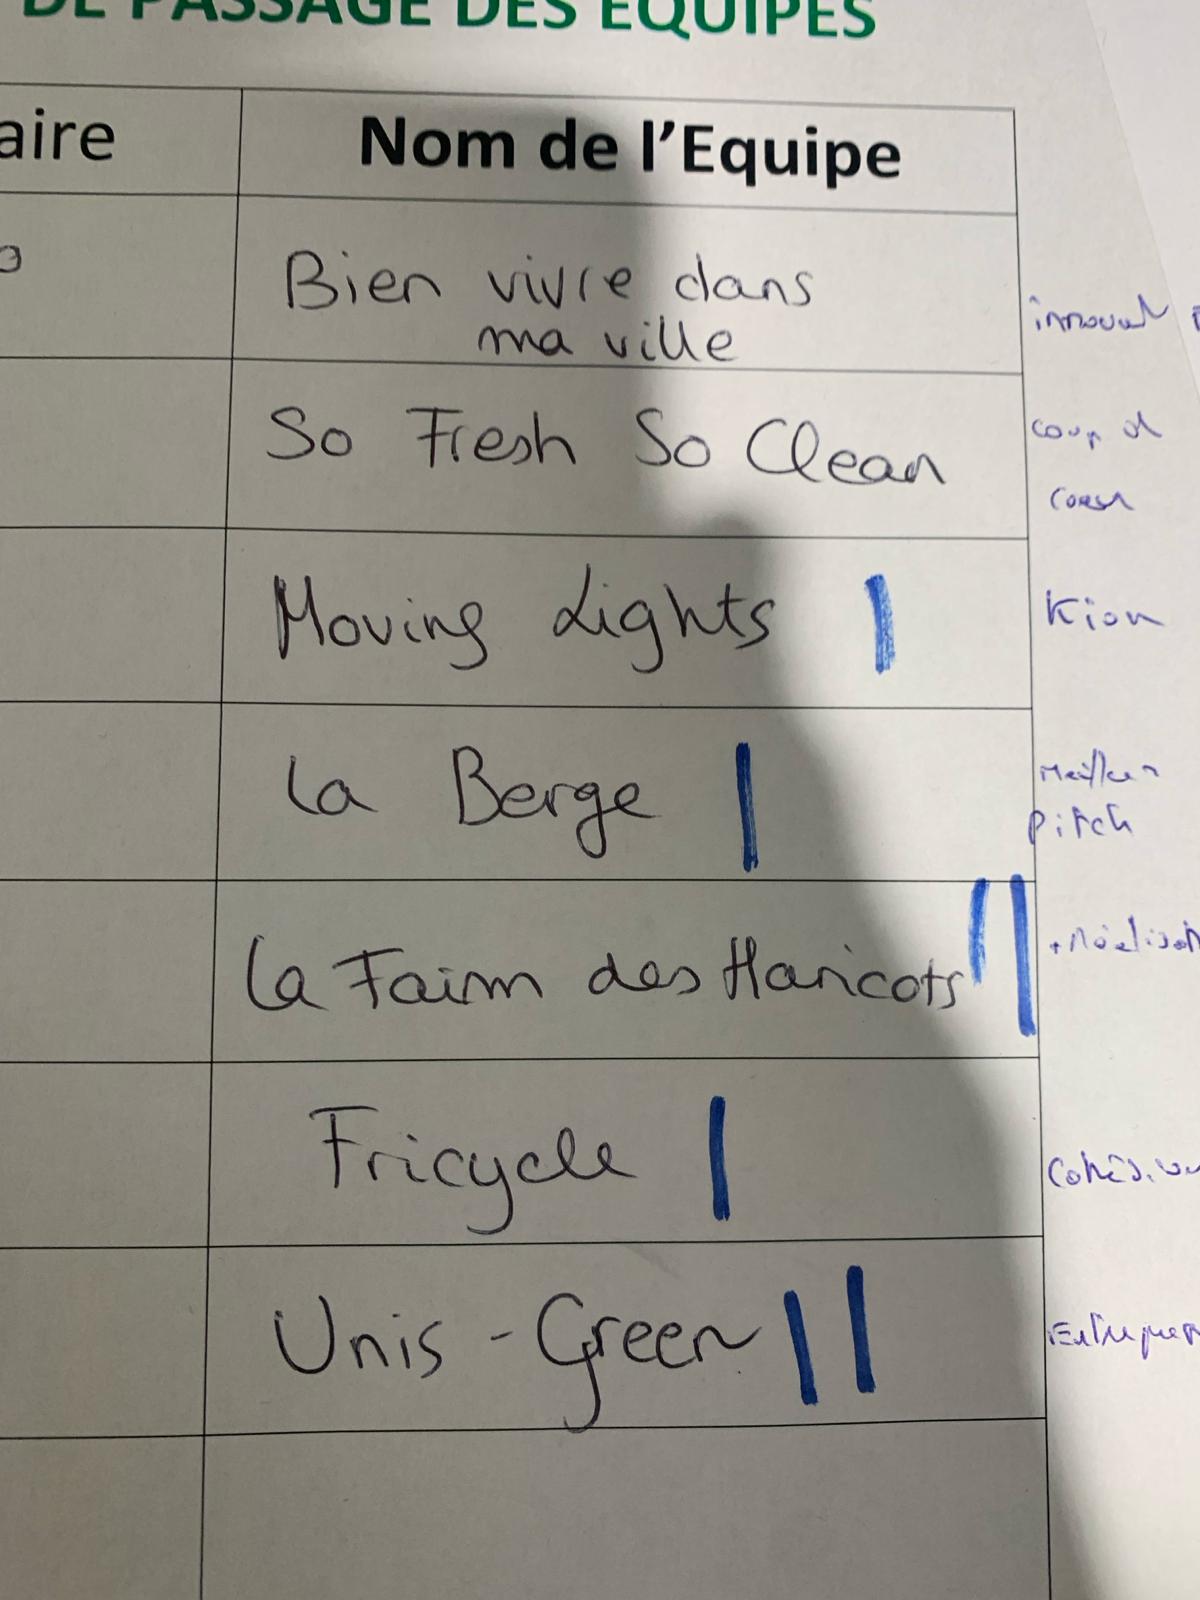 DE PASSAGE DES EQUIPES
aire
Nom de l'Equipe
Bien vivre dans
ma ville
So Fresh So Clean
coup d
coeur
Moving Lights
Kion
La Berge
Meilleur
pitch
La Faim des Haricots
Fricycle
Unis - Green